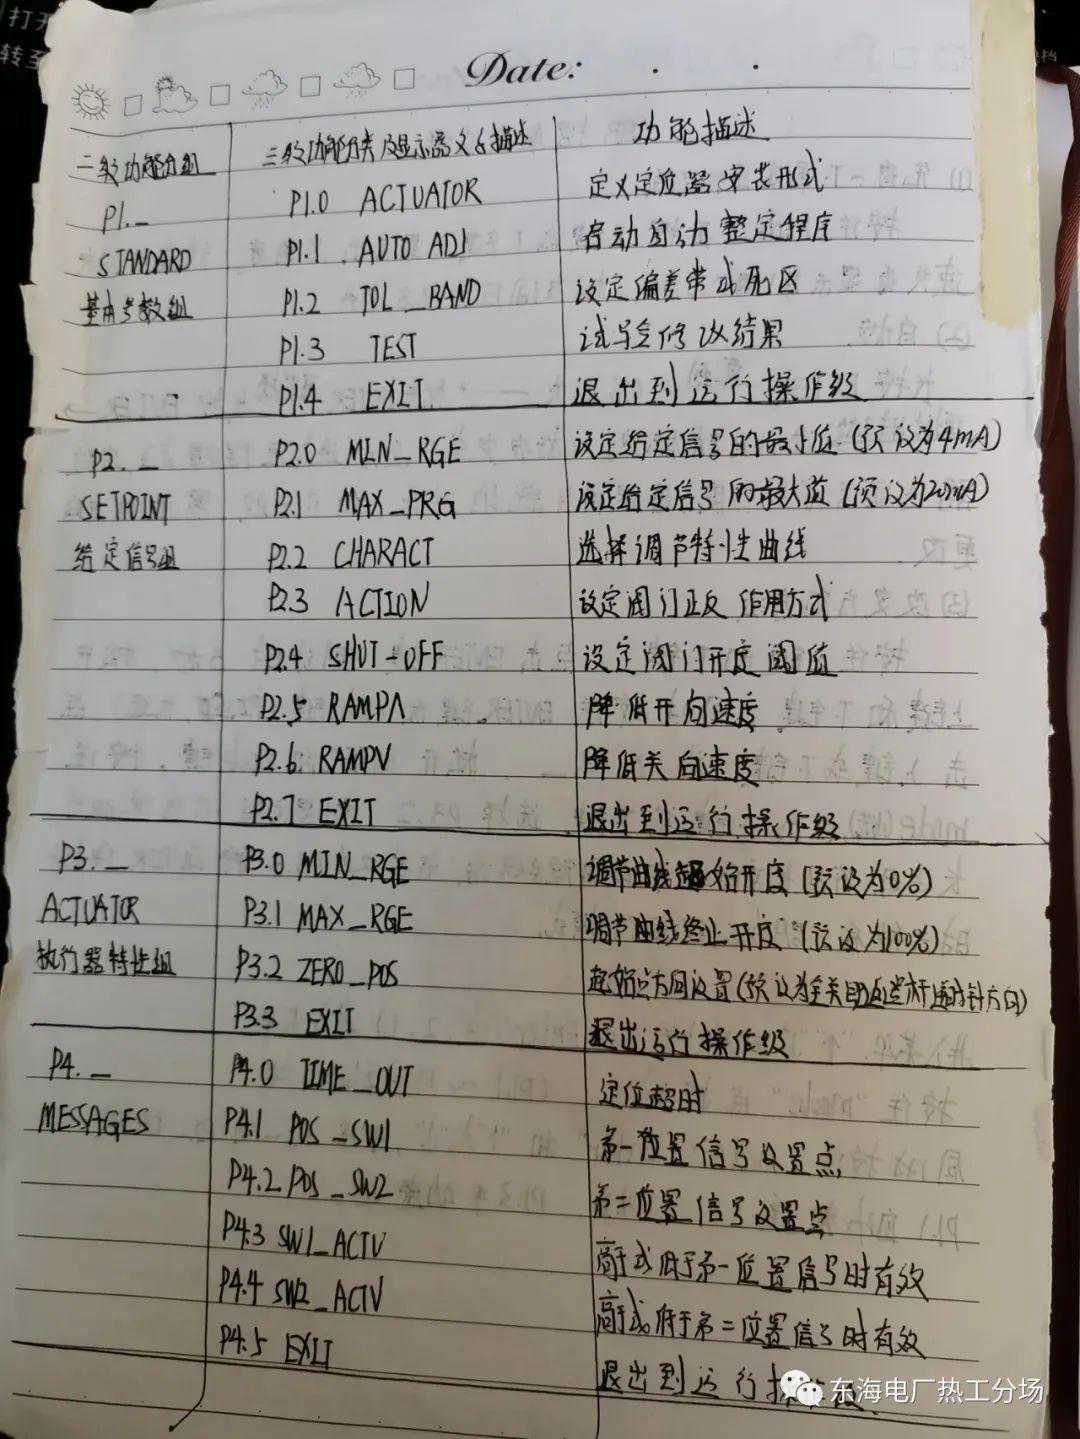 打开
转至
档
Date:
二级功能分组 三级功能分类及显示意义&描述 功能描述
P1._ P1.0 ACTUATOR 定义定位器安装形式
STANDARD P1.1 AUTO ADJ 启动自动整定程序
基本参数组 P1.2 TOL_BAND 设定偏差带或死区
P1.3 TEST 试写会修改结果
P1.4 EXIT 退出到运行操作级
P2._ P2.0 MIN_RGE 设定给定信号的最小值(预设为4mA)
SETPOINT P2.1 MAX_PRG 设定给定信号的最大值(预设为20mA)
给定信号组 P2.2 CHARACT 选择调节特性曲线
P2.3 ACTION 设定阀门正反作用方式
P2.4 SHUT-OFF 设定阀门开度阈值
P2.5 RAMPA 降低开向速度
P2.6 RAMPV 降低关向速度
P2.7 EXIT 退出到运行操作级
P3._ P3.0 MIN_RGE 调节曲线始开度(预设为0%)
ACTUATOR P3.1 MAX_RGE 调节曲线终止开度(预设为100%)
执行器特性组 P3.2 ZERO_POS 起始点方向设置(预设为全关即反馈杆逆时针方向)
P3.3 EXIT 退出运行操作级
P4._ P4.0 TIME_OUT 定位超时
MESSAGES P4.1 POS_SW1 第一位置信号设置点
P4.2 POS_SW2 第二位置信号设置点
P4.3 SW1_ACTV 高于或低于第一位置信号时有效
P4.4 SW2_ACTV 高于或低于第二位置信号时有效
P4.5 EXIT 退出到运行操作级
东海电厂热工分场